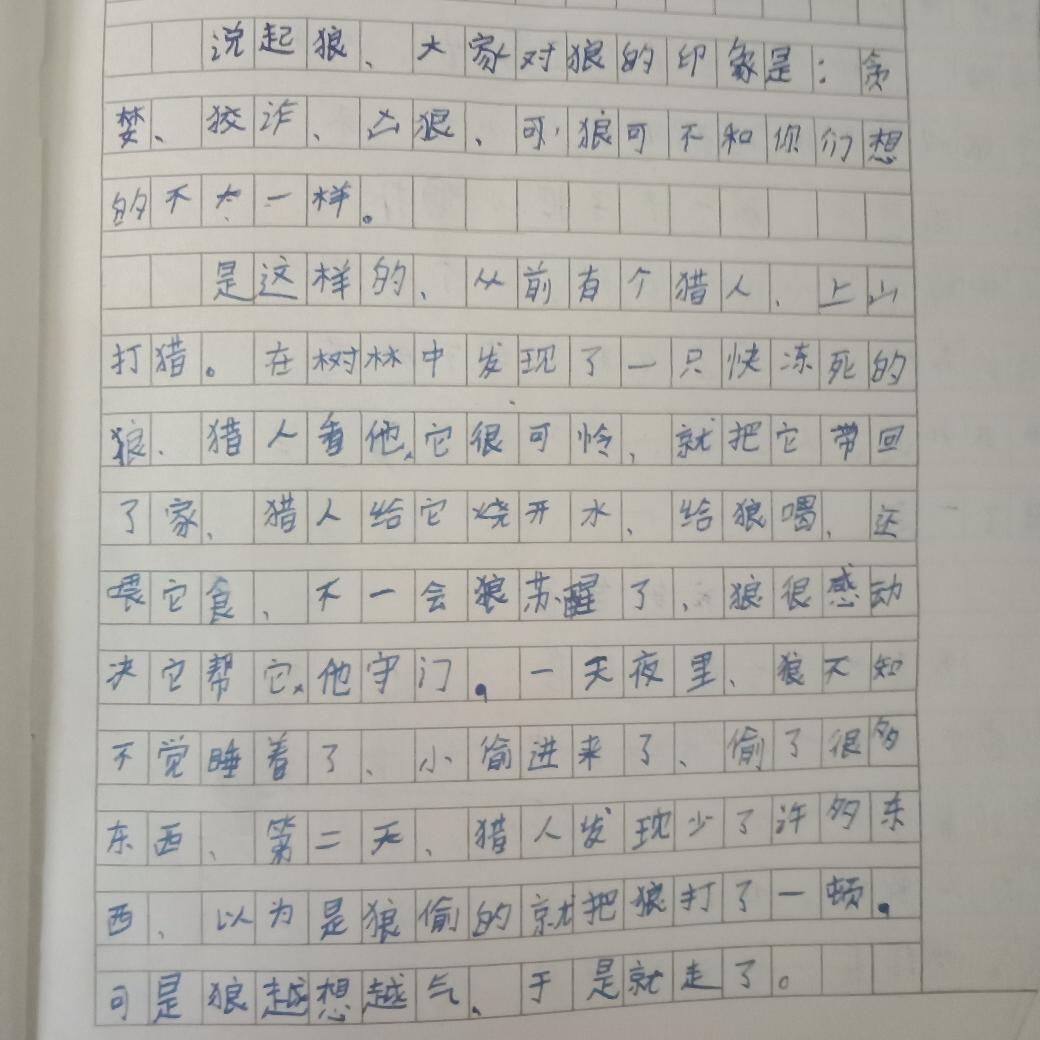 说起狼、大家对狼的印象是：贪
婪、狡诈、凶狠、可，狼可不和你们想
的不太一样。
是这样的、从前有个猎人、上山
打猎。在树林中发现了一只快冻死的
狼、猎人看他，它很可怜，就把它带回
了家、猎人给它烧开水、给狼喝、还
喂它食、不一会狼苏醒了、狼很感动
决它帮它，他守门。一天夜里、狼不知
不觉睡着了、小偷进来了、偷了很多
东西、第二天、猎人发现少了许多东
西、以为是狼偷的就把狼打了一顿。
可是狼越想越气、于是就走了。